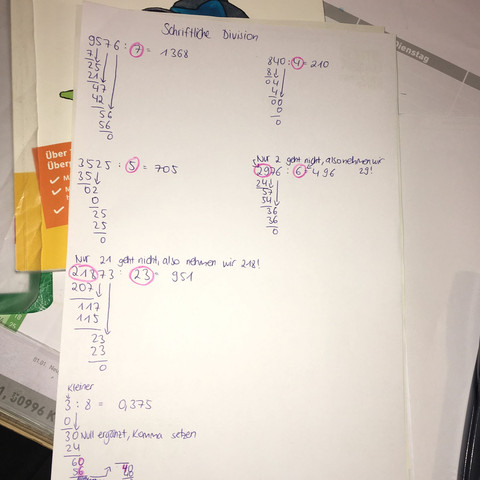 Schriftliche Division
9576 : 7 = 1368
7
25
21
47
42
56
56
0
840 : 4 = 210
8
04
4
00
0
0
3525 : 5 = 705
35
02
0
25
25
0
Nur 2 geht nicht, also nehmen wir
29!
2976 : 6 = 496
24
57
54
36
36
0
Nur 21 geht nicht, also nehmen wir 218!
21873 : 23 = 951
207
117
115
23
23
0
kleiner
3 : 8 = 0,375
0
30 Null ergänzt, Komma setzen
24
60
56
40
Über
Über
Dienstag
01.01.